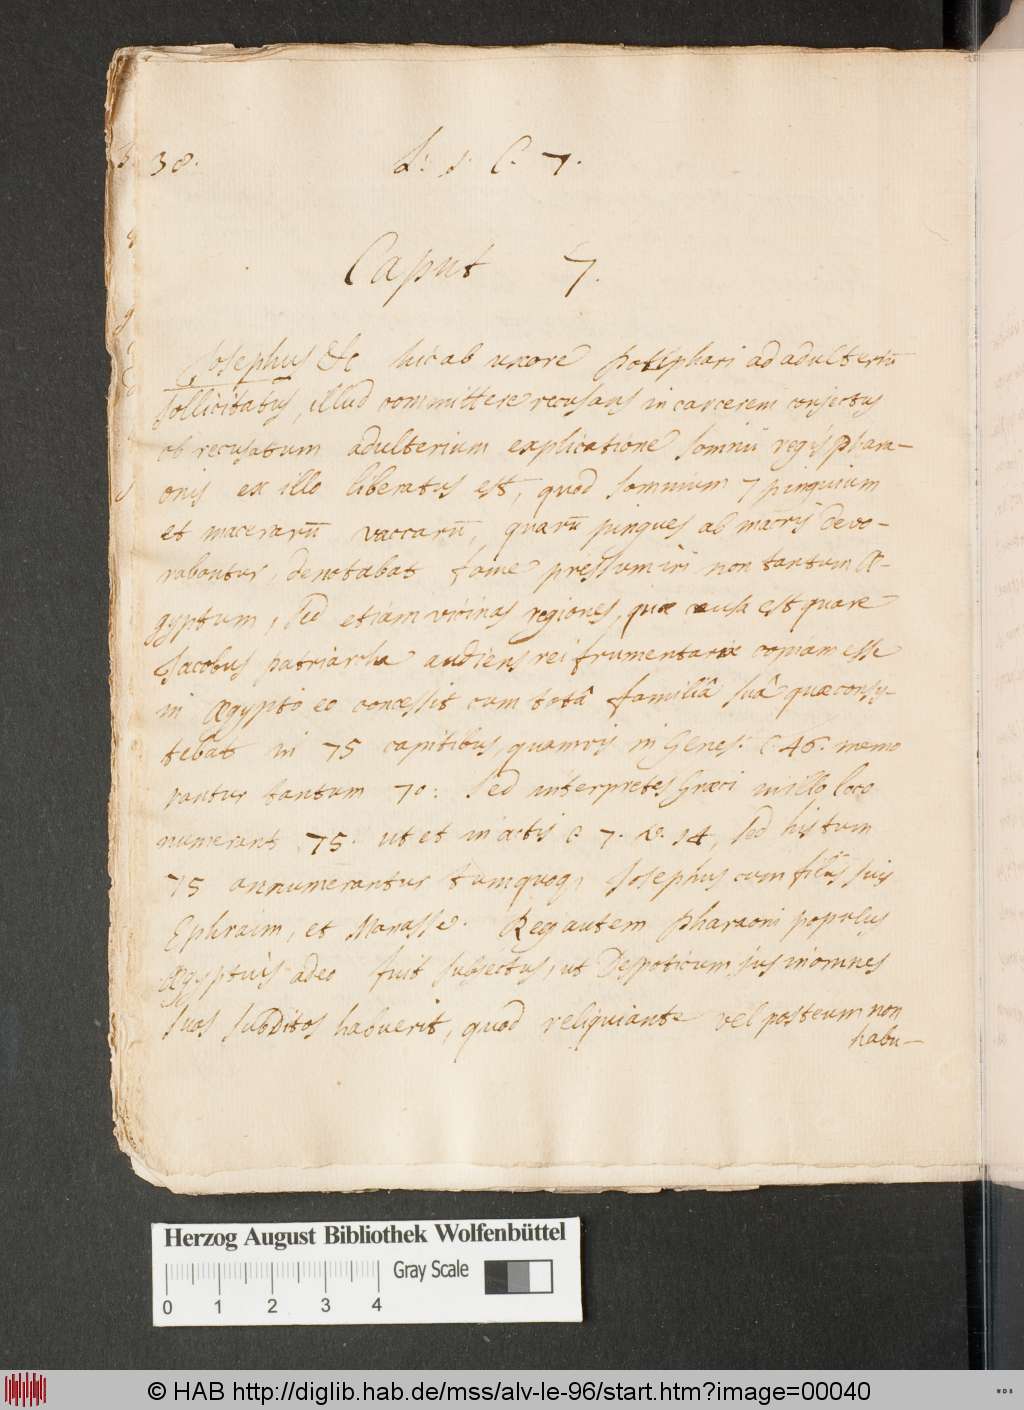 38. L: 1: C. 7.
Caput 7.
Josephus &c hic ab uxore Potiphari ad adulteriū
sollicitatus, illud committere recusans in carcerem conjectus
ob recusatum adulterium explicatione somnii regis Phara-
onis ex illo liberatus est, quod somnium 7 pinguium
et macerarū vaccarū, quarū pingues ab macris devo-
rabantur, denotabat fame pressum iri non tantum Æ-
gyptum, sed etiam vicinas regiones, quæ causa est quare
Jacobus patriarcha audiens rei frumentariæ copiam esse
in Ægypto eo concessit cum totâ familiâ suâ quæ consis-
tebat in 75 capitibus, quamvis in Genes. C. 46. memo
rantur tantum 70: sed interpretes Græci in illo loco
numerant 75. ut et in actis c 7. v. 14, sed his tum
75 annumerantur tumquoq, Josephus cum filiis suis
Ephraim, et Manasse. Regi autem Pharaoni populus
Ægyptius adeo fuit subjectus, ut Despoticum jus in omnes
suos subditos habuerit, quod reliqui ante vel post eum non
habu-
Herzog August Bibliothek Wolfenbüttel
Gray Scale
0 1 2 3 4
© HAB http://diglib.hab.de/mss/alv-le-96/start.htm?image=00040